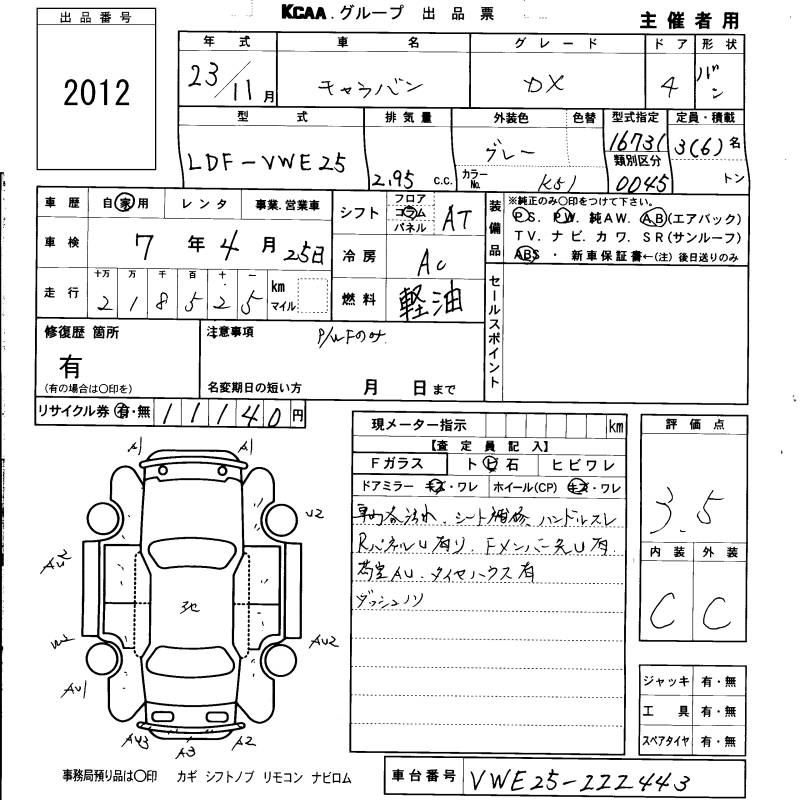 KCAA.グループ 出品票
主催者用
出品番号
2012
年式 車名 グレード ドア 形状
23/11月 キャラバン DX 4 バン
型式 排気量 外装色 色替 型式指定 定員・積載
LDF-VWE25 2.95 c.c. グレー カラーNo. K51 16731 3(6)名
類別区分 0045 トン
車歴 自家用 レンタ 事業.営業車
車検 7年4月25日
走行 十万 万 千 百 十 一 km マイル
2 1 8 5 2 5
シフト フロア コラム パネル AT
冷房 AC
燃料 軽油
装備品
※純正のみ〇印をつけて下さい。
P.S. P.W. 純A.W. A.B(エアバック)
T V. ナビ. カワ. S R(サンルーフ)
ABS ・ 新車保証書←(注) 後日送りのみ
セールスポイント
修復歴 箇所
有
(有の場合は〇印を)
注意事項 P/WFのみ
名変期日の短い方 月 日まで
リサイクル券 有・無 11140円
現メーター指示 km
【査定員記入】
Fガラス トビ石 ヒビワレ
ドアミラー キズ・ワレ ホイール(CP) キズ・ワレ
車内各汚れ、シート補修、ハンドルスレ
RパネルU有り、FメンバーU有
荷室AU、タイヤハウス有
ダッシュノリ
評価点
3.5
内装 外装
C C
A1 A1
U2
AU2
3地
AU2
AU1
AU3 A3 A2
ジャッキ 有・無
工具 有・無
スペアタイヤ 有・無
事務局預り品は〇印 カギ シフトノブ リモコン ナビロム
車台番号 VWE25-222443